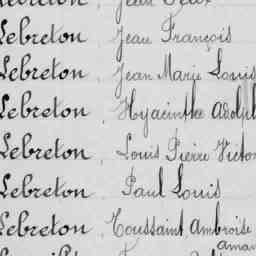 Lebreton, Jean François
Lebreton, Jean Marie Louis
Lebreton, Hyacinthe Adolph
Lebreton, Louis Pierre Victo
Lebreton, Paul Louis
Lebreton, Toussaint Ambroise